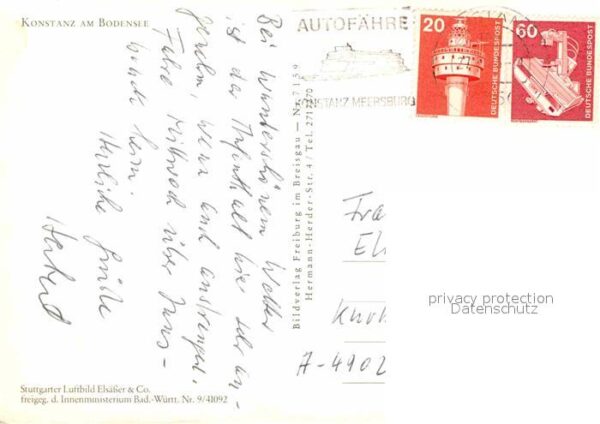 KONSTANZ AM BODENSEE
Bei wunderschönem Wetter
ist der Aufenthalt hier sehr an-
genehm, wenn auch anstrengend.
Fahre Mittwoch über Inns-
bruck heim.
Herzliche Grüße
Herbert
Stuttgarter Luftbild Elsäßer & Co.
freigeg. d. Innenministerium Bad.-Württ. Nr. 9/41092
Bildverlag Freiburg im Breisgau — Nr. 7159
Hermann-Herder-Str. 4 / Tel. 2717270
AUTOFÄHRE
KONSTANZ MEERSBURG
20
DEUTSCHE BUNDESPOST
60
DEUTSCHE BUNDESPOST
Fra
El
A-4902
privacy protection
Datenschutz